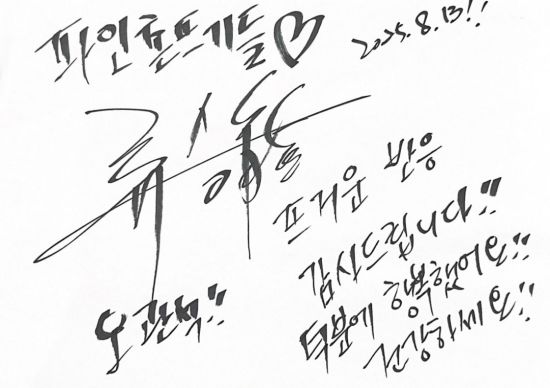 파인 촌뜨기들♡ 2025. 8. 13!!
류승룡
뜨거운 반응
감사드립니다!!
덕분에 행복했어요!!
건강하세요!!
오관석!!